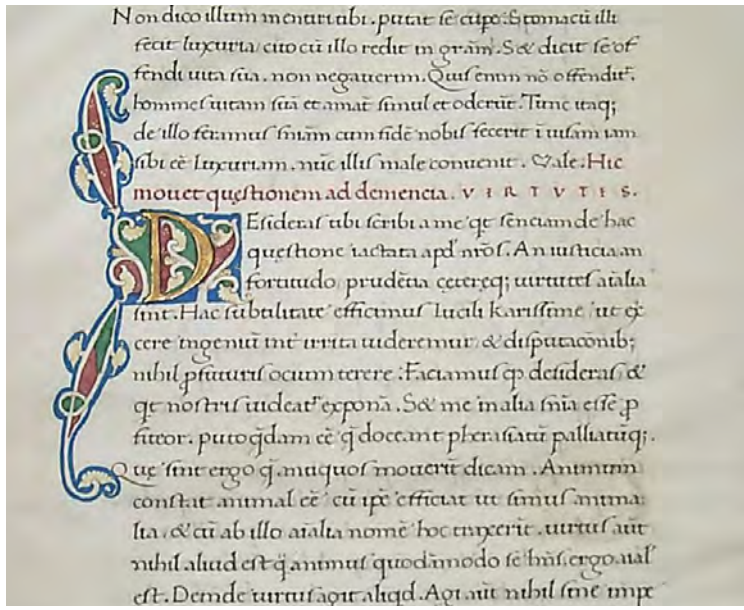 Non dico illum mentiri tibi. putat se cupe: Stomacū illi
fecit luxuria / cito cū illo redit in grām. Sed dicit se of
fendi uita sua. non negauerim. Quis enim nō offendit.
homines uitam suā et amāt simul et oderūt. Tunc itaq;
de illo feramus sniām cum fidē nobis fecerit īuisam iam
sibi eē luxuriam. nūc illis male conuenit. Vale. Hic
mouet quęstionem ad demencia. VIRTVTIS.
DEsideras tibi scribi a me qt senciam de hac
quęstione iactata apd nrōs. An iusticia an
fortitudo prudētia ceteręq; uirtutes aīalia
sint. Hac subtilitate efficimus Lucili karissime / ut ex
cere ingeniū int irrita uideremur / & disputacōnib;
nihil ꝓfuturis ocium terere: Faciamus qd desideras / &
qt nostris uideat exponā. Sed me in alia snīa esse ꝓ
fiteor. puto qdam eē q doceant pherasiatū palliatūq;.
Quę sint ergo q antiquos mouerit dicam. Animum
constat animal eē / cū ipē efficiat ut simus anima
lia / & cū ab illo aīalia nomē hoc traxerīt. uirtus aūt
nihil aliud est q̄ animus quodāmodo se hn̄s. ergo aīal
est. Deinde uirtus agit aliqd. Agi aūt nihil sine impe